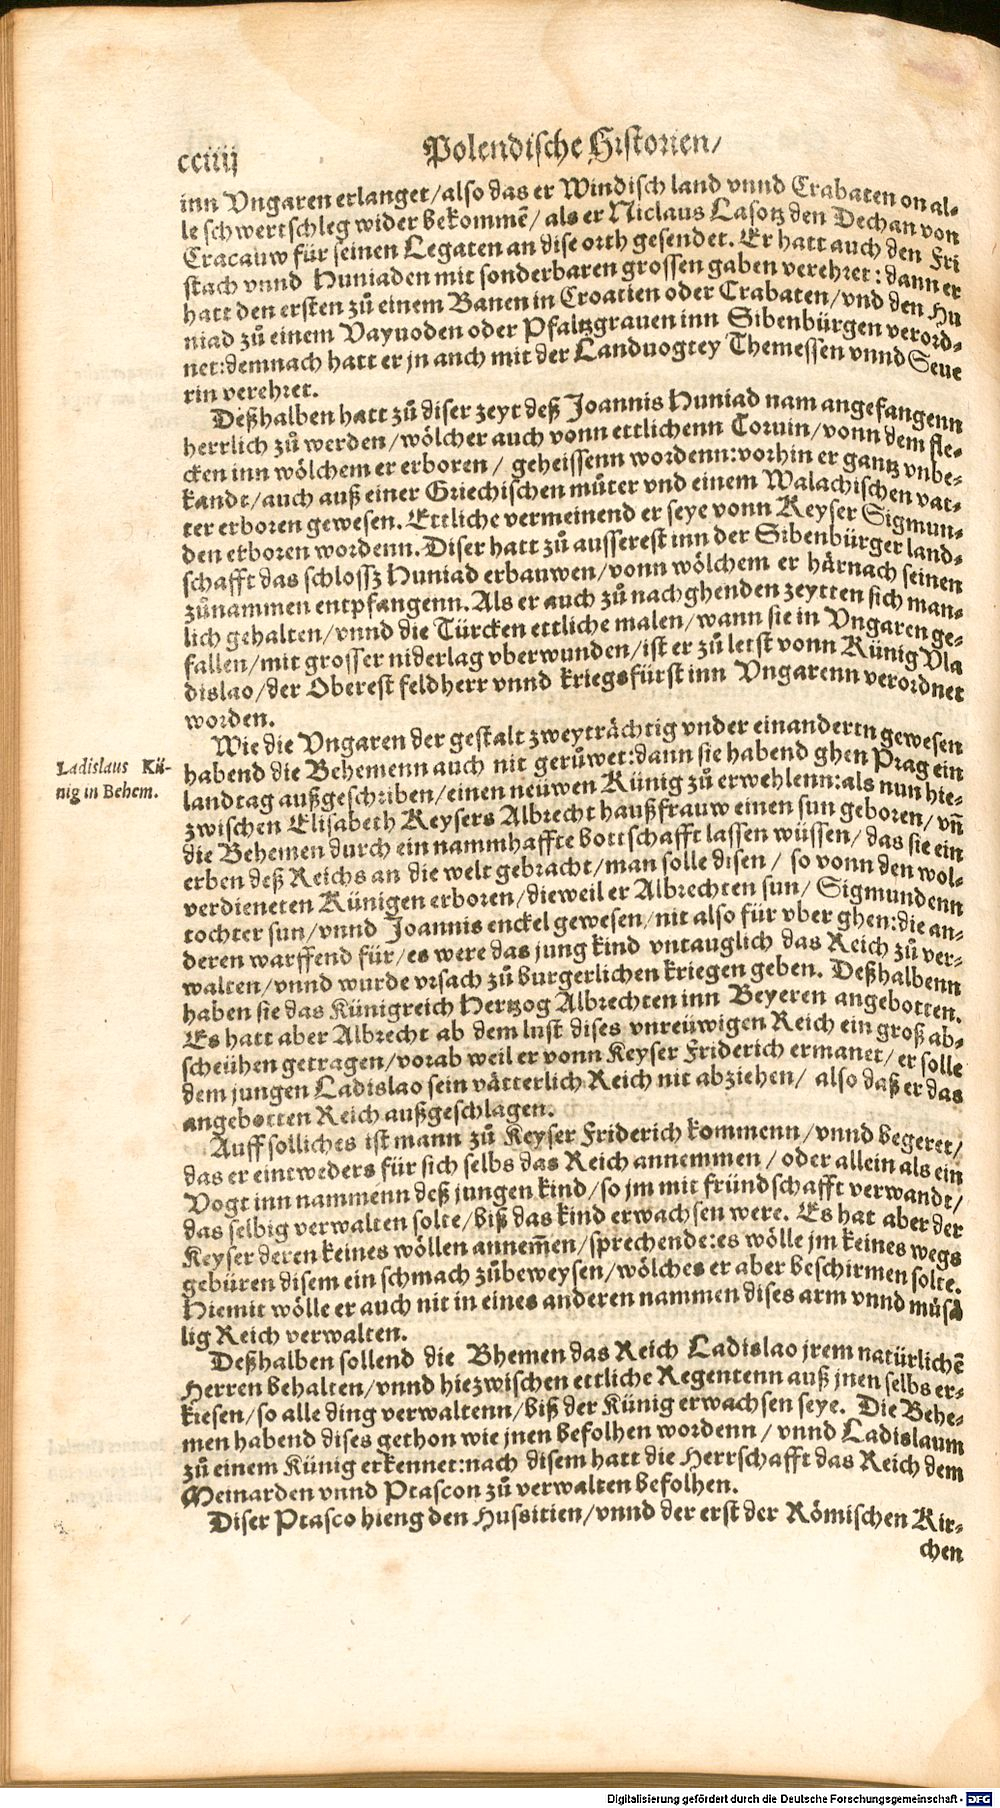 cciiij
Polendische Historien/
inn Vngaren erlanget/also das er Windisch land vnnd Crabaten on al-
le schwertschleg wider bekommē/ als er Niclaus Lasotz den Dechan von
Cracauw für seinen Legaten an dise orth gesendet. Er hatt auch den Fri
stach vnnd Huniaden mit sonderbaren grossen gaben verehret: dann er
hatt den ersten zů einem Banen in Croatien oder Crabaten/vnd den Hu
niad zů einem Vayuoden oder Pfaltzgrauen inn Sibenbürgen verord-
net:demnach hatt er jn auch mit der Landuogtey Themessen vnnd Seue
rin verehret.
Deßhalben hatt zů diser zeyt deß Joannis Huniad nam angefangenn
herrlich zů werden/wölcher auch vonn ettlichenn Coruin/vonn dem fle-
cken inn wölchem er erboren/ geheissenn wordenn:vorhin er gantz vnbe-
kandt/auch auß einer Griechischen můter vnd einem Walachischen vat-
ter erboren gewesen. Ettliche vermeinend er seye vonn Keyser Sigmun-
den erboren wordenn. Diser hatt zů ausserest inn der Sibenbürger land-
schafft das schlossz Huniad erbauwen/vonn wölchem er härnach seinen
zůnammen entpfangenn. Als er auch zů nachghenden zeytten sich man-
lich gehalten/vnnd die Türcken ettliche malen/wann sie in Vngaren ge-
fallen/mit grosser niderlag vberwunden/ist er zů letst vonn Künig Vla
dislao/der Oberest feldherr vnnd kriegsfürst inn Vngarenn verordnet
worden.
Wie die Vngaren der gestalt zweyträchtig vnder einandertn gewesen
Ladislaus Kü-
nig in Behem.
habend die Behemenn auch nit gerůwet:dann sie habend ghen Prag ein
landtag außgeschriben/einen neüwen Künig zů erwehlenn:als nun hie-
zwischen Elisabeth Keysers Albrecht haußfrauw einen sun geboren/ vñ
die Behemen durch ein nammhaffte bottschafft lassen wüssen/ das sie ein
erben deß Reichs an die welt gebracht/man solle disen/ so vonn den wol-
verdieneten Künigen erboren/dieweil er Albrechten sun/ Sigmundenn
tochter sun/vnnd Joannis enckel gewesen/nit also für vber ghen:die an-
deren warffend für/es were das jung kind vntauglich das Reich zů ver-
walten/vnnd wurde vrsach zů burgerlichen kriegen geben. Deßhalbenn
haben sie das Künigreich Hertzog Albrechten inn Beyeren angebotten.
Es hatt aber Albrecht ab dem lust dises vnreüwigen Reich ein groß ab-
scheühen getragen/vorab weil er vonn Keyser Friderich ermanet/ er solle
dem jungen Ladislao sein vätterlich Reich nit abziehen/ also daß er das
angebotten Reich außgeschlagen.
Auff solliches ist mann zů Keyser Friderich kommenn/vnnd begeret/
das er eintweders für sich selbs das Reich annemmen/ oder allein als ein
Vogt inn nammenn deß jungen kind/so jm mit fründschafft verwandt/
das selbig verwalten solte/biß das kind erwachsen were. Es hat aber der
Keyser deren keines wöllen annem̄en/sprechende:es wölle jm keines wegs
gebüren disem ein schmach zůbeweysen/wölches er aber beschirmen solte.
Hiemit wölle er auch nit in eines anderen nammen dises arm vnnd můsä
lig Reich verwalten.
Deßhalben sollend die Bhemen das Reich Ladislao jrem natürlichē
Herren behalten/vnnd hiezwischen ettliche Regentenn auß jnen selbs er-
kiesen/so alle ding verwaltenn/biß der Künig erwachsen seye. Die Behe-
men habend dises gethon wie jnen befolhen wordenn/ vnnd Ladislaum
zů einem Künig erkennet:nach disem hatt die Herrschafft das Reich dem
Meinarden vnnd Ptascon zů verwalten befolhen.
Diser Ptasco hieng den Hussitien/vnnd der erst der Römischen Kir-
chen
Digitalisierung gefördert durch die Deutsche Forschungsgemeinschaft - DFG